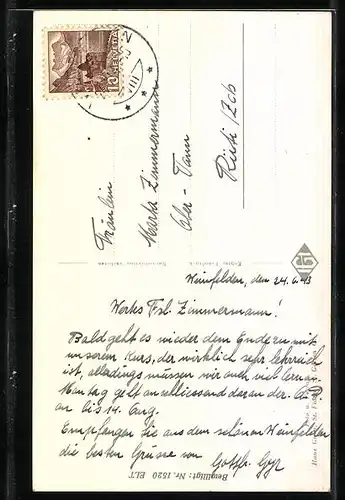 HELVETIA
10
VIII
Fräulein
Marta Zimmermann
Ober-Tann
Rüti/Zch
Weinfelden, den 24.6.43
Wertes Frl. Zimmermann!
Bald geht es wieder dem Ende zu mit
unserem Kurs, der wirklich sehr lehrreich
ist, allerdings müssen wir auch viel lernen.
Montag geht anschliessend daran der
an bis 14. Aug.
Empfangen Sie aus dem schönen Weinfelden
die besten Grüsse von Gottfr.
Bewilligt Nr. 1520 ELT